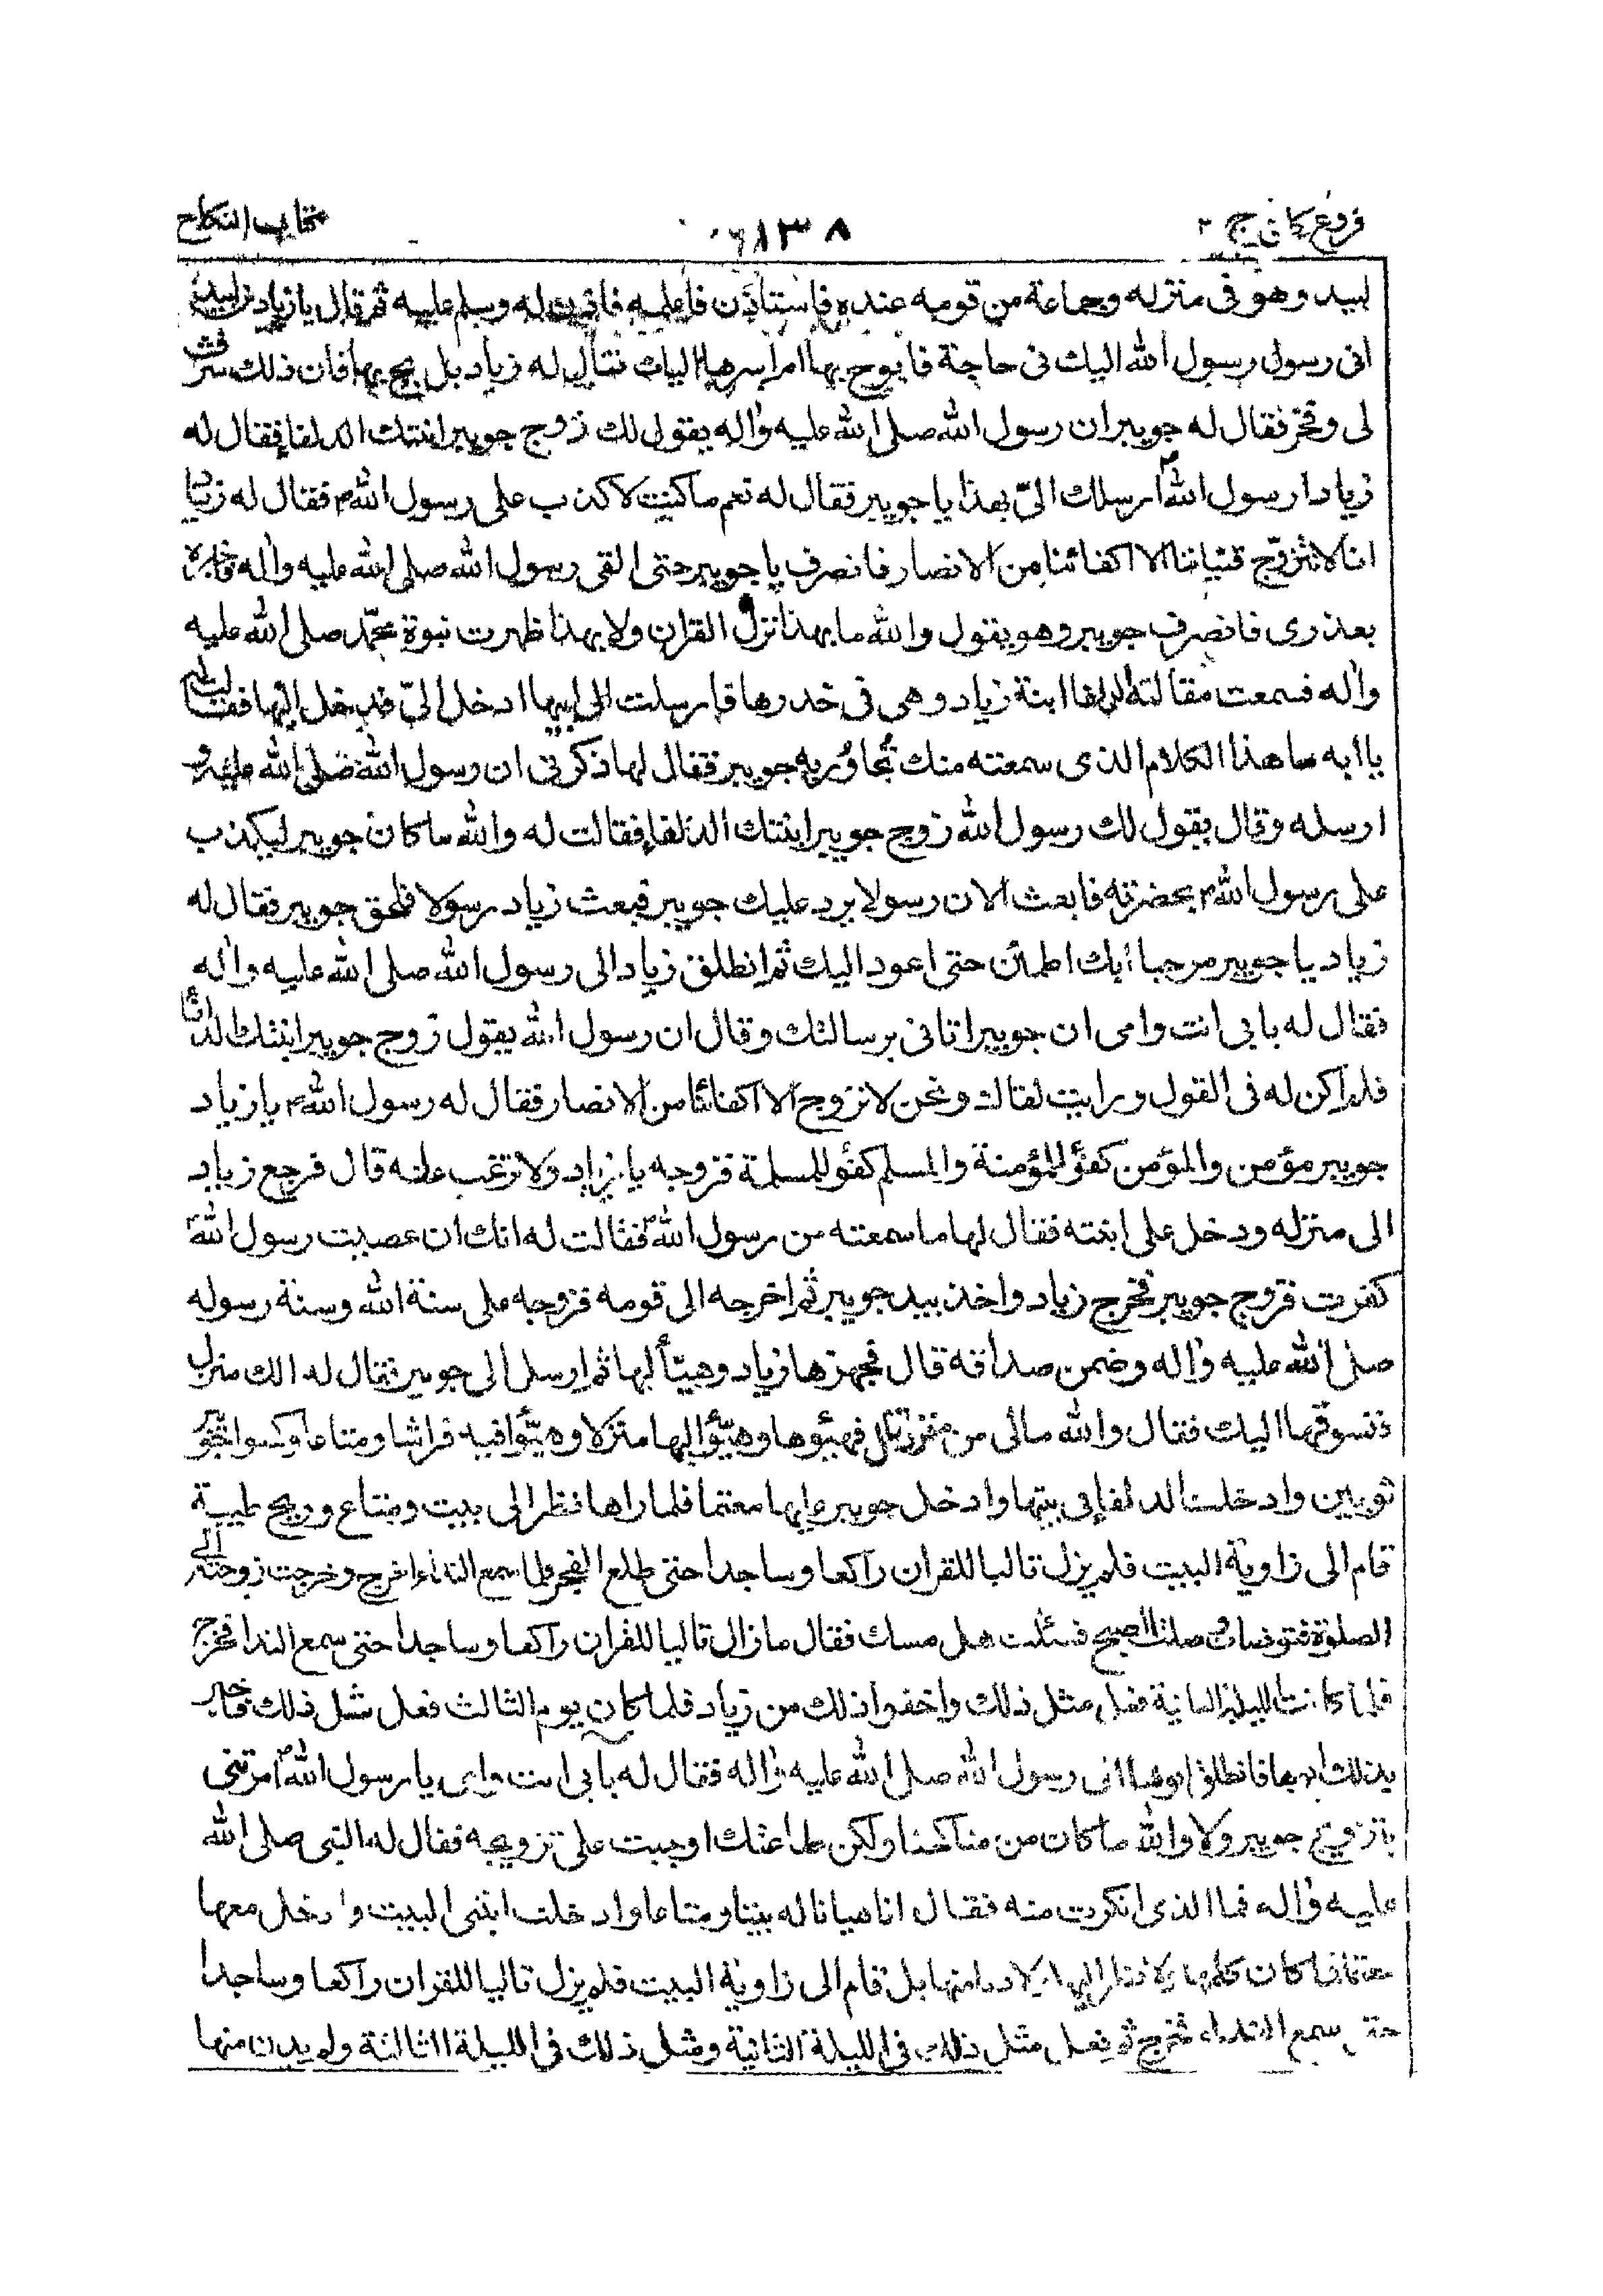 فروع كافى ج ٢ ١٣٨ كتاب النكاح
لبيد وهو فى منزله وجماعة من قومه عنده فاستاذن فاعلم فاذن له وسلم عليه ثم قال يا زياد بن لبيد
انى رسول رسول الله اليك فى حاجة فابوح بها ام اسرها اليك فقال له زياد بل بح بها فان ذلك شرف
لى وفخر فقال له جويبر ان رسول الله صلى الله عليه واله يقول لك زوج جويبر ابنتك الدلفا فقال له
زياد ارسول الله ارسلك الىّ بهذا يا جويبر فقال له نعم ما كنت لاكذب على رسول الله ص فقال له زياد
انا لا نزوّج فتياتنا الا اكفائنا من الانصار فانصرف يا جويبر حتى القى رسول الله صلى الله عليه واله فاخبره
بعذرى فانصرف جويبر وهو يقول والله ما بهذا نزل القران ولا بهذا ظهرت نبوة محمّد صلى الله عليه
واله فسمعت مقالته الدلفا ابنة زياد وهى فى خدرها فارسلت الى ابيها ادخل الىّ فدخل اليها فقالت له
يا ابه ما هذا الكلام الذى سمعته منك تُحاوُر به جويبر فقال لها ذكر لى ان رسول الله صلى الله عليه و
ارسله وقال يقول لك رسول الله زوج جويبر ابنتك الدلفا فقالت له والله ما كان جويبر ليكذب
على رسول الله ص بحضرته فابعث الان رسولا يرد عليك جويبر فبعث زياد رسولا فلحق جويبر فقال له
زياد يا جويبر مرحبا بك اطمئن حتى اعود اليك ثم انطلق زياد الى رسول الله صلى الله عليه واله
فقال له بابى انت وامى ان جويبر اتانى برسالتك وقال ان رسول الله يقول زوج جويبر ابنتك الدلفا
فلم اكن له فى القول ورايت لقاك ونحن لا نزوج الا اكفائنا من الانصار فقال له رسول الله ص يا زياد
جويبر مؤمن والمؤمن كفؤ للمؤمنة والمسلم كفؤ للمسلمة فزوجه يا زياد ولا ترغب عنه قال فرجع زياد
الى منزله ودخل على ابنته فقال لها ما سمعته من رسول الله ص فقالت له انك ان عصيت رسول الله ص
كفرت فزوج جويبر فخرج زياد واخذ بيد جويبر ثم اخرجه الى قومه فزوجه على سنة الله وسنة رسوله
صلى الله عليه واله وضمن صداقه قال فجهزها زياد وهيّأ لها ثم ارسل الى جويبر فقال له الك منزل
فنسوقها اليك فقال والله مالى من منزل قال فهيؤها وهيّؤا لها منزلا وهيّؤا فيه فراشا ومتاعا وكسوا جويبر
ثوبين وادخلت الدلفا فى بيتها وادخل جويبر عليها معتما فلما راها نظر الى بيت ومتاع وريح طيبة
قام الى زاوية البيت فلم يزل تاليا للقران راكعا وساجدا حتى طلع الفجر فلما سمع النداء خرج وخرجت زوجته الى
الصلوة فتوضات وصلت الصبح فسئلت هل مسك فقال ما زال تاليا للقران راكعا وساجدا حتى سمع الندا فخرج
فلما كانت الليلة الثانية فعل مثل ذلك واخفوا ذلك من زياد فلما كان يوم الثالث فعل مثل ذلك فاخبر
بذلك ابوها فانطلق ابوها الى رسول الله صلى الله عليه واله فقال له بابى انت وامى يا رسول الله ص امرتنى
بتزويج جويبر ولا والله ما كان من مناكحنا ولكن طاعتك اوجبت على تزويجه فقال له النبى صلى الله
عليه واله فما الذى انكرت منه فقال انا هيانا له بيتا ومتاعا وادخلت ابنتى البيت وادخل معها
معتما فما كان كلمها ولا نظر اليها ولا دنا منها بل قام الى زاوية البيت فلم يزل تاليا للقران راكعا وساجدا
حتى سمع النداء فخرج ثم فعل مثل ذلك فى الليلة الثانية ومثل ذلك فى الليلة الثالثة ولم يدن منها